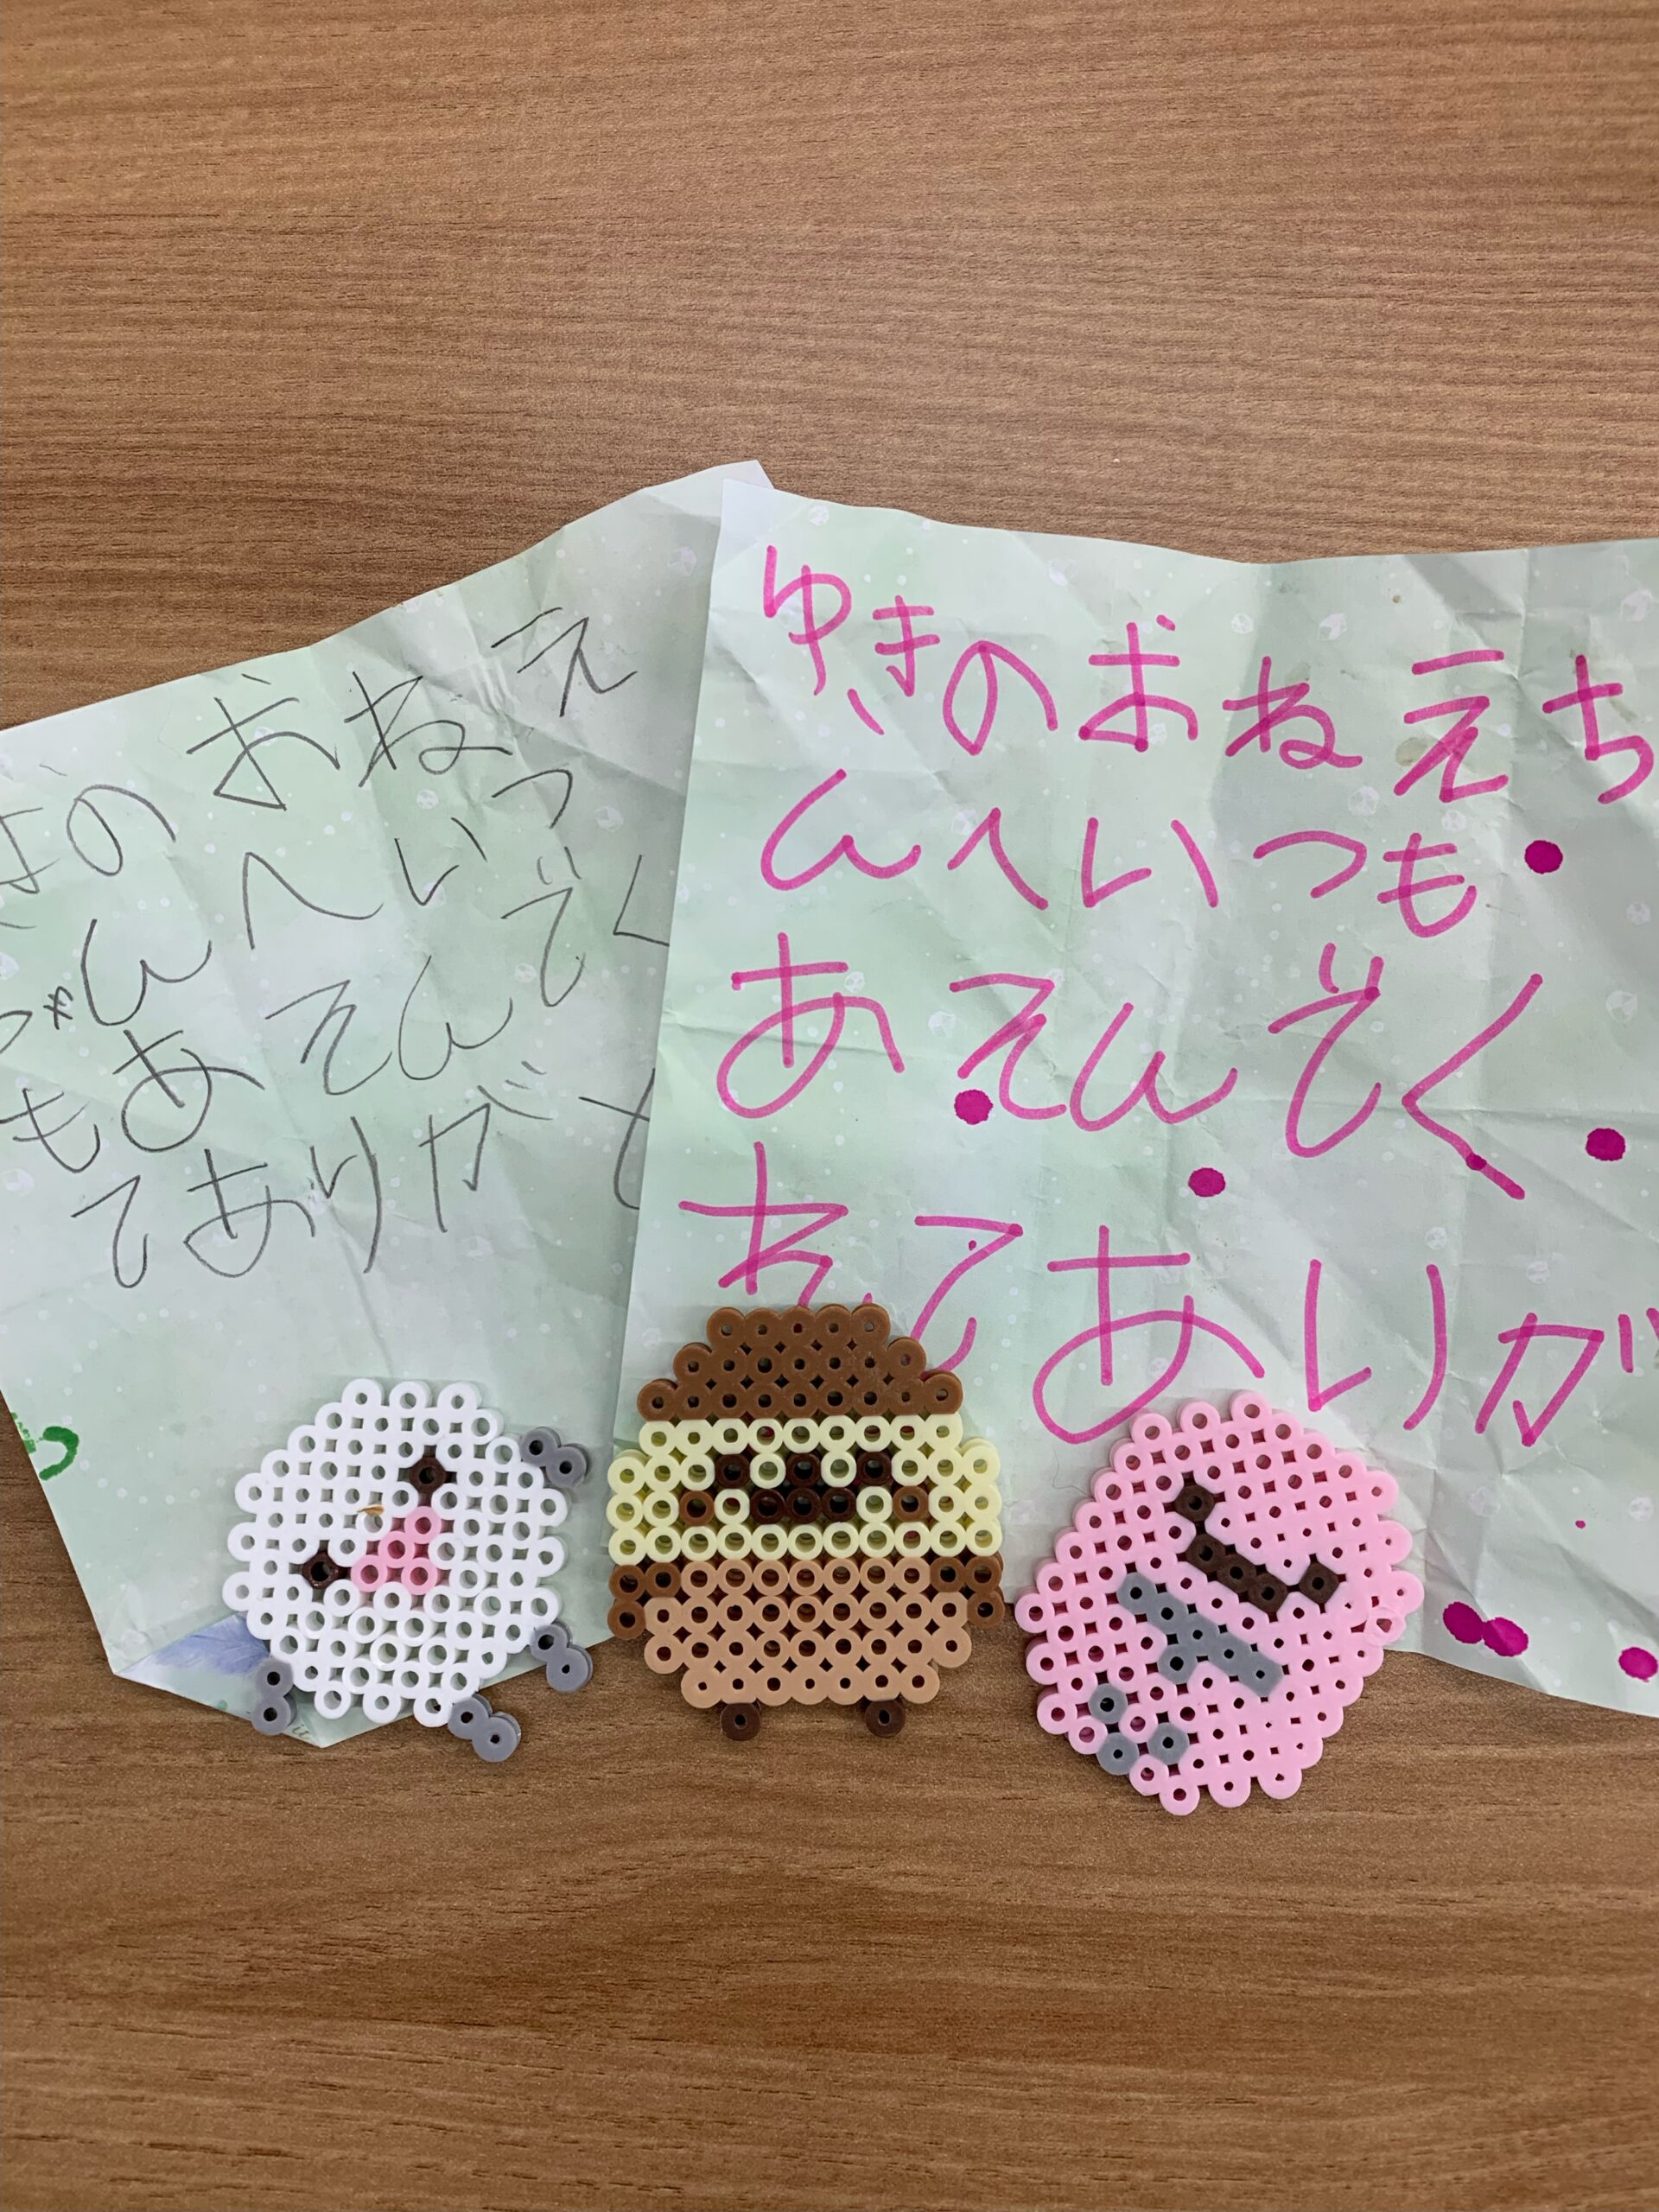 のおねえ
ゃんへいつ
もあそんでく
てありがと
ゆきのおねえち
んへいつも
あそんでく
れてありが